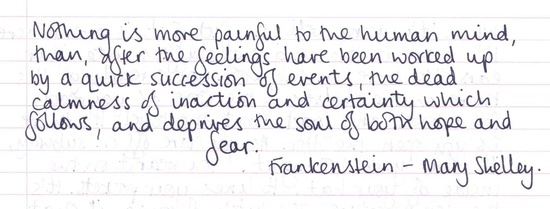 Nothing is more painful to the human mind,
than, after the feelings have been worked up
by a quick succession of events, the dead
calmness of inaction and certainty which
follows, and deprives the soul of both hope and
fear.
Frankenstein - Mary Shelley.